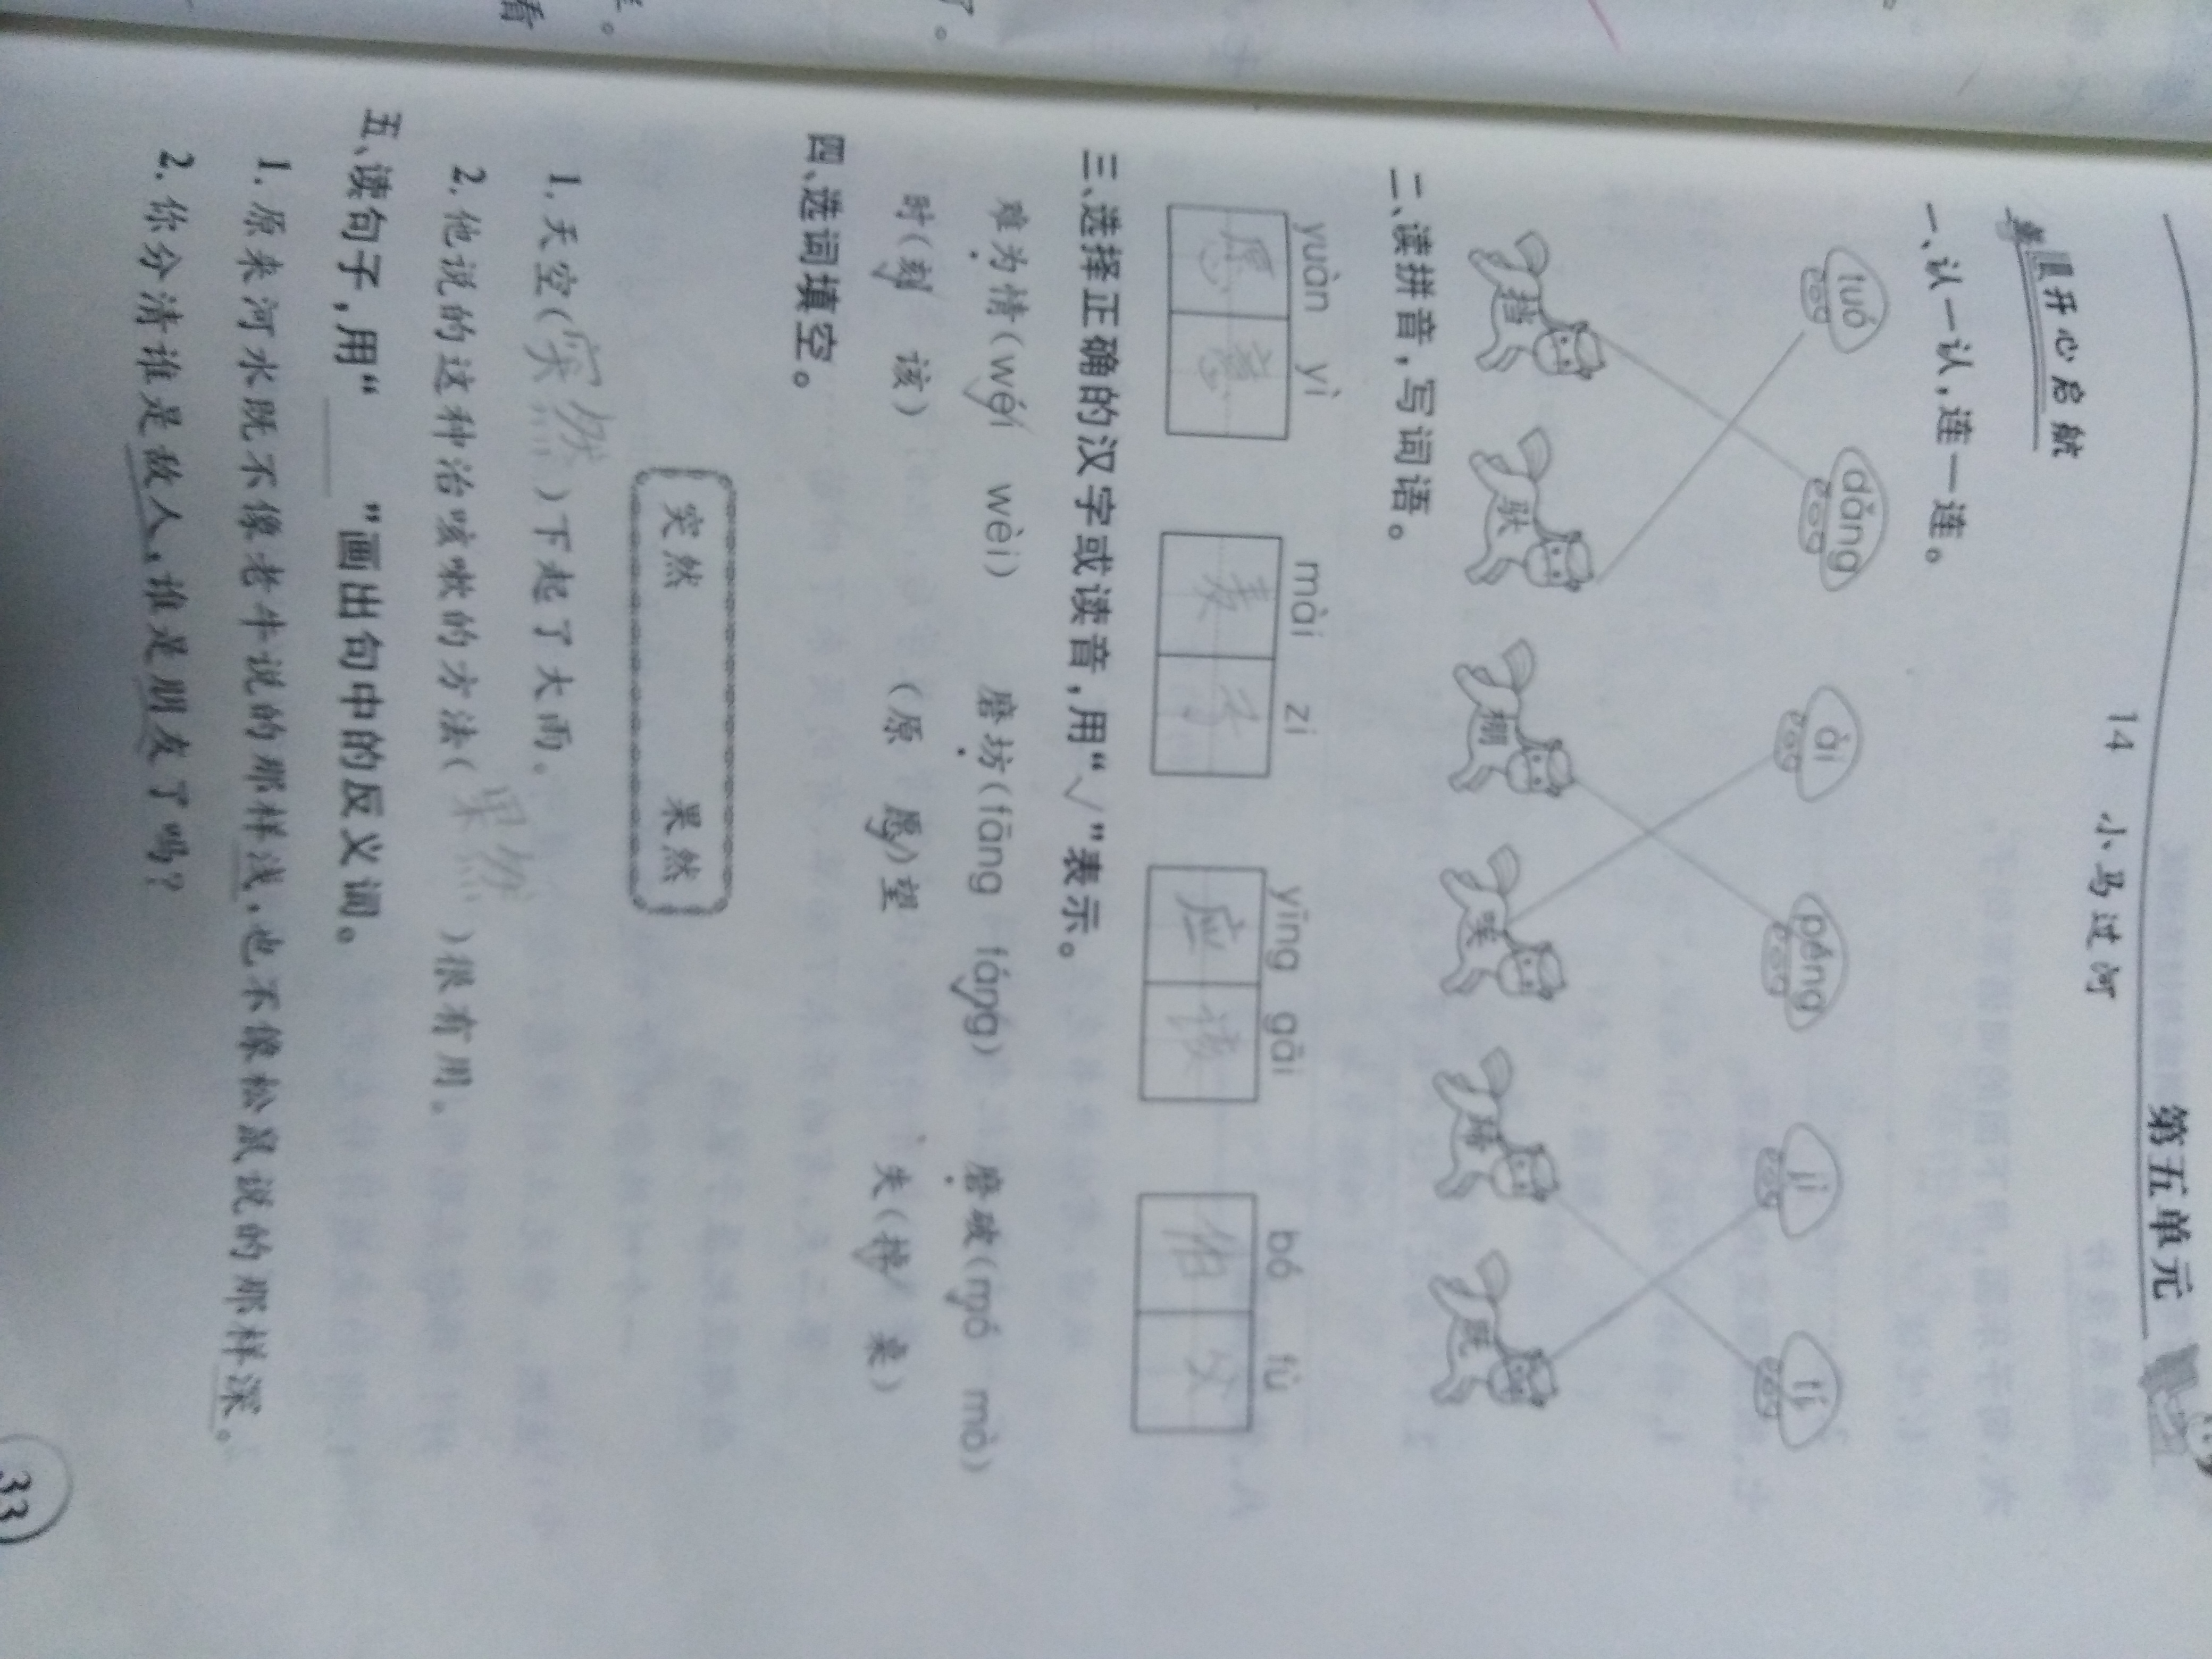 第五单元
14 小马过河
开心启航
一、认一认,连一连。
tuó dǎng āi péng jì tí
挡 驮 棚 唉 蹄 既
二、读拼音,写词语。
yuàn yì mài zi yīng gāi bó fù
愿意 麦子 应该 伯父
三、选择正确的汉字或读音,用“√”表示。
难为情(wéi√ wèi) 磨坊(fāng fáng√) 磨破(mó√ mò)
时(刻√ 该) (原 愿√)望 失(掉√ 桌)
四、选词填空。
突然 果然
1.天空(突然)下起了大雨。
2.他说的这种治咳嗽的方法(果然)很有用。
五、读句子,用“____”画出句中的反义词。
1.原来河水既不像老牛说的那样浅,也不像松鼠说的那样深。
2.你分清谁是敌人,谁是朋友了吗?
33